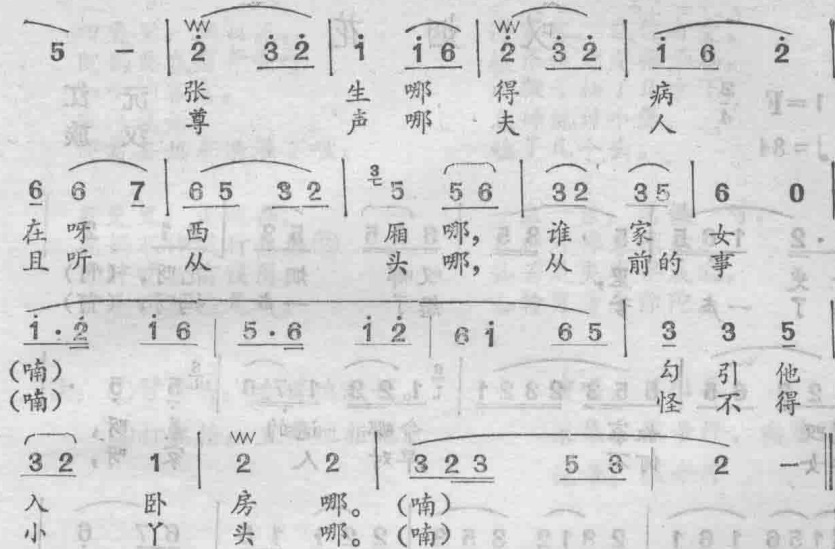 5 — | 2 3 2 | 1 1 6 | 2 3 2 | 1 6 2 |
张 生 哪 得 病
尊 声 哪 夫 人
6 6 7 | 6 5 3 2 | 5 5 6 | 3 2 3 5 | 6 0 |
在 呀 西 厢 哪, 谁 家 女
且 听 从 头 哪, 从 前的 事
1 · 2 1 6 | 5 · 6 1 2 | 6 1 6 5 | 3 3 5 |
(喃) 勾 引 他
(喃) 怪 不 得
3 2 1 | 2 2 | 3 2 3 5 3 | 2 — ‖
入 卧 房 哪。 (喃)
小 丫 头 哪。 (喃)